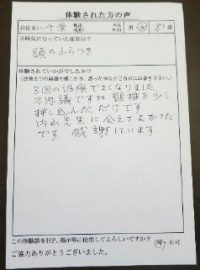 体験された方の声
お住まい 千葉 都道府県 市区町村 男・女 81歳
※特気になっていた症状は?
頭のふらつき
体験されていかがでしたか?
3回の治療でよくなりました
不思議ですね 頸椎を少し
押し込んだだけです
内永先生に会えてよかった
です。感謝しています
この体験談をHP、掲示等に使用してよろしいですか? 可・不可
ご協力ありがとうございました。